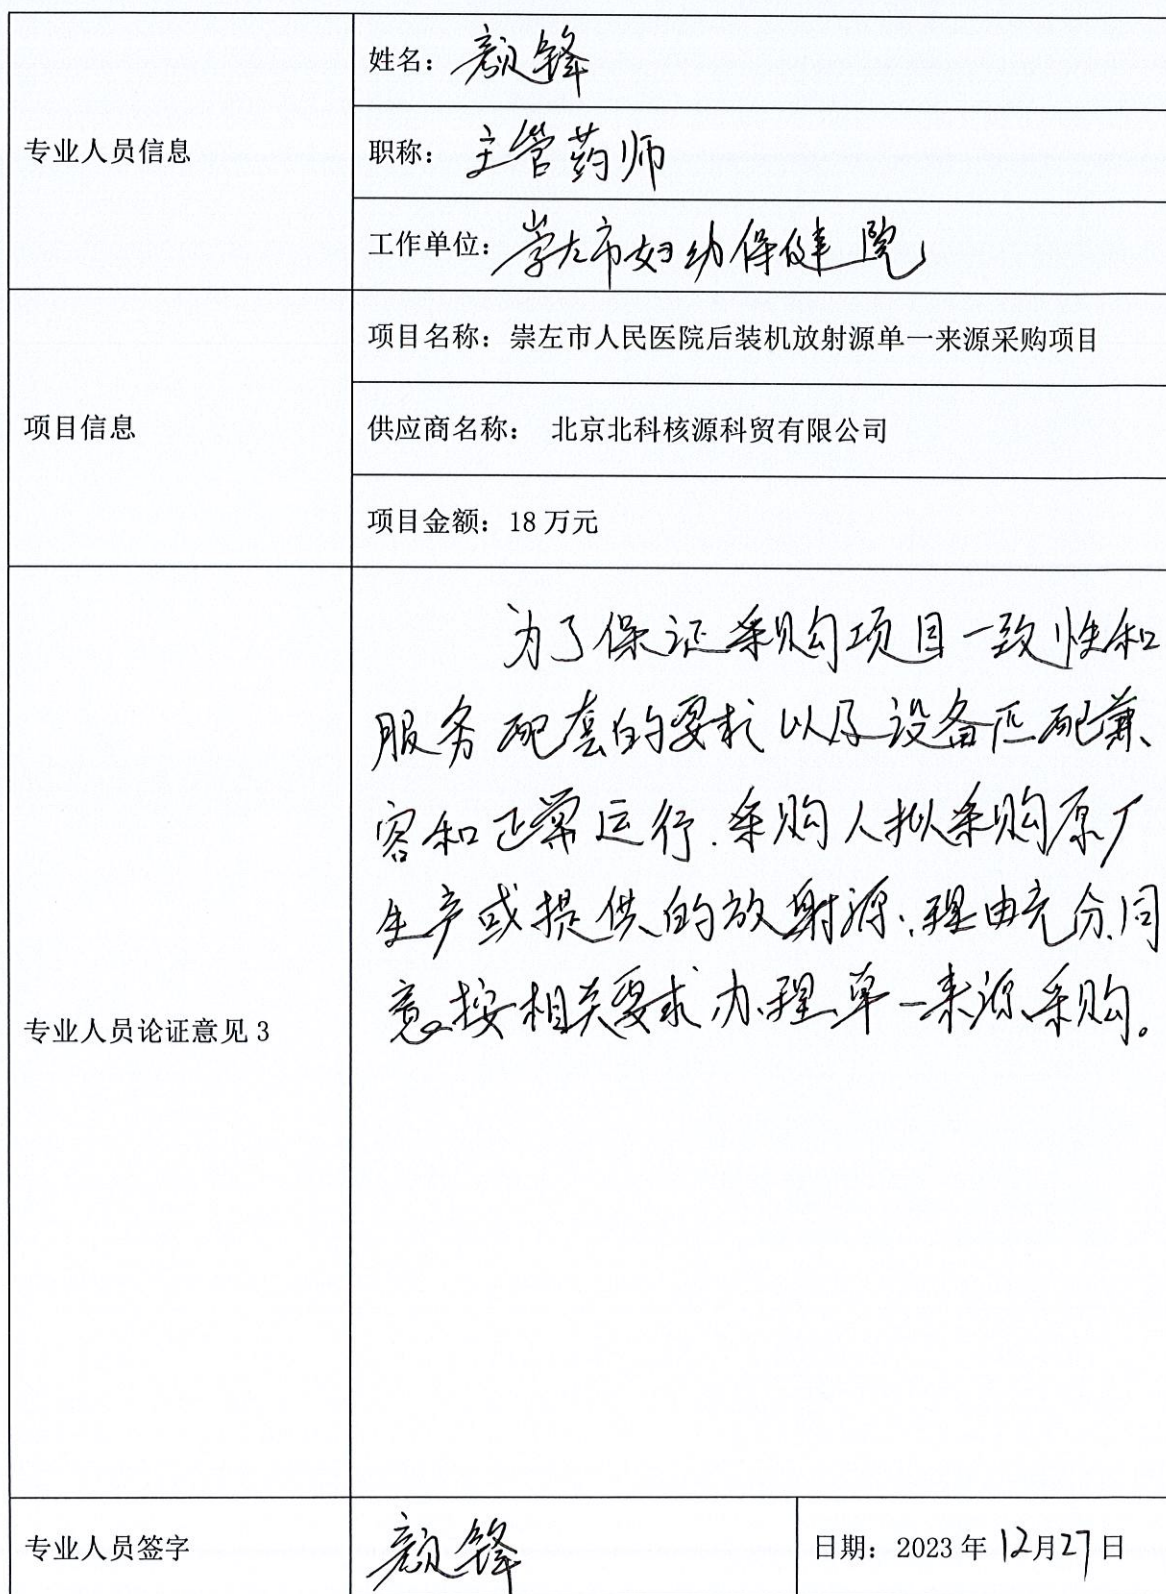 专业人员信息
姓名：颜锋
职称：主管药师
工作单位：崇左市妇幼保健院
项目信息
项目名称：崇左市人民医院后装机放射源单一来源采购项目
供应商名称： 北京北科核源科贸有限公司
项目金额：18 万元
专业人员论证意见 3
为了保证采购项目一致性和
服务配套的要求以及设备匹配兼
容和正常运行.采购人拟采购原厂
生产或提供的放射源,理由充分,同
意按相关要求办理单一来源采购。
专业人员签字
颜锋
日期：2023 年 12月27日